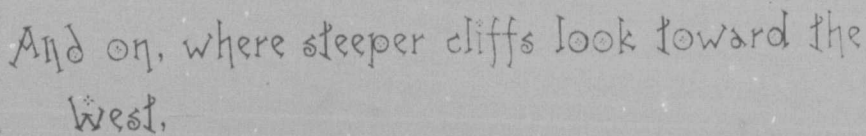 And on, where steeper cliffs look toward the
West,